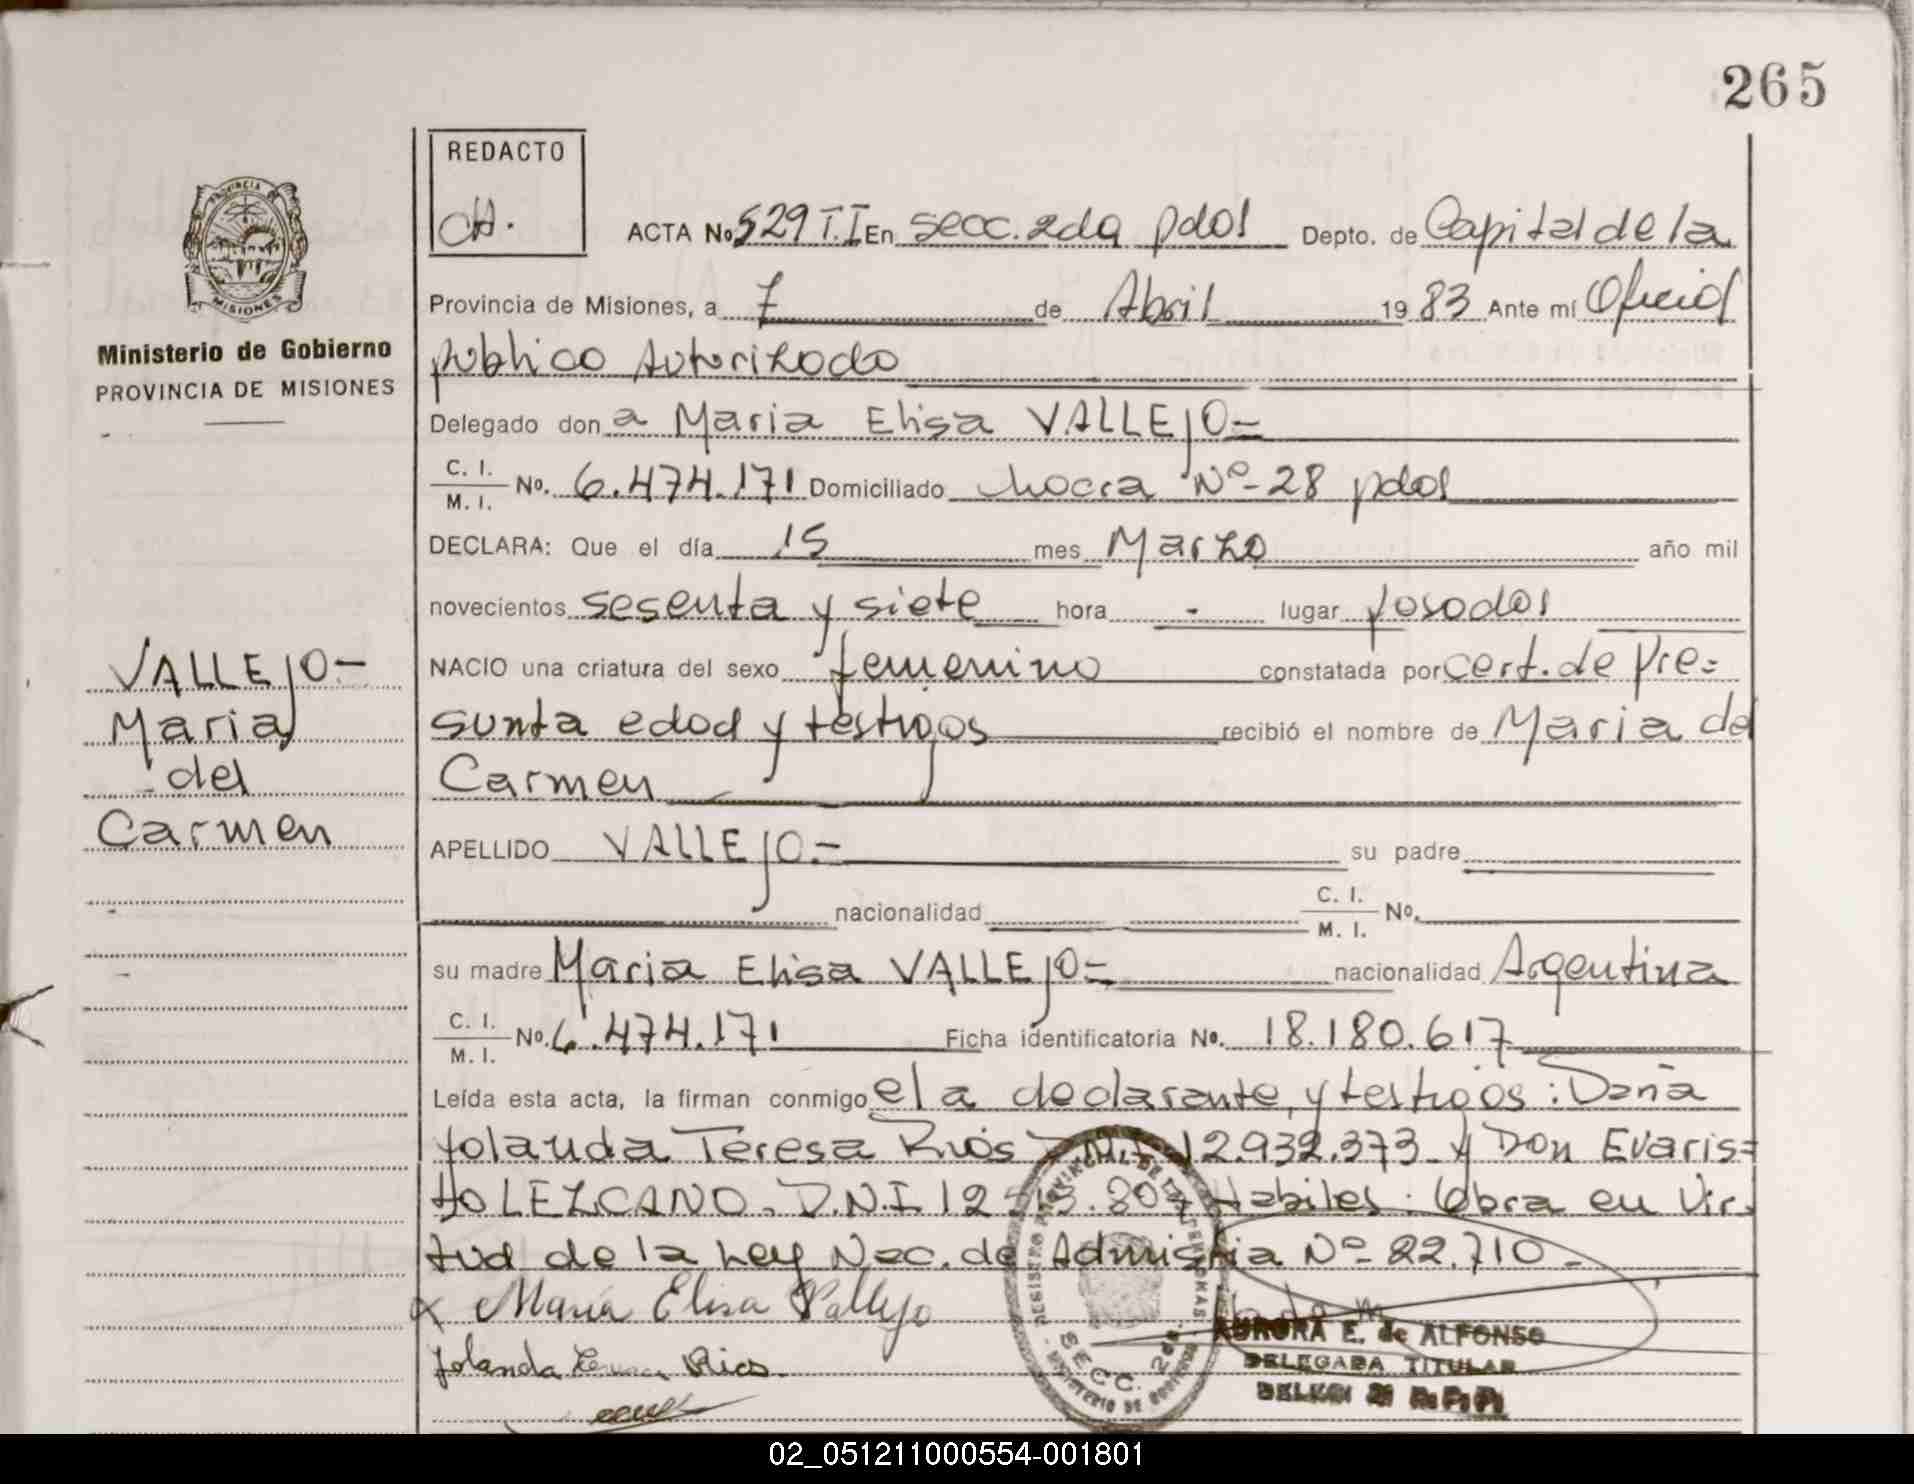 265
REDACTO
CH.
ACTA No 529 T.I En secc. 2da pdas Depto. de Capital de la
Provincia de Misiones, a 7 de Abril 1983 Ante mí Oficial
publico Autorizado
Ministerio de Gobierno
PROVINCIA DE MISIONES
Delegado don a Maria Elisa VALLEJO=
C. I. / M. I. No. 6.474.171 Domiciliado chacra Nº-28 pdas
DECLARA: Que el día 15 mes Marzo año mil
novecientos sesenta y siete hora - lugar posadas
NACIO una criatura del sexo femenino constatada por cert. de Pre=
sunta edad y testigos recibió el nombre de Maria del
Carmen
VALLEJO-
Maria
del
Carmen
APELLIDO VALLEJO.- su padre
nacionalidad C. I. / M. I. No.
su madre Maria Elisa VALLEJO= nacionalidad Argentina
C. I. / M. I. No. 6.474.171 Ficha identificatoria No. 18.180.617
Leída esta acta, la firman conmigo el a declarante, y testigos: Doña
Yolanda Teresa Rios D.N.I 12.932.373 y Don Evaris=
to LEZCANO. D.N.I 12 Habiles. Obra en Vir
tud de la Ley Nac. de Admistia Nº- 22.710-
x Maria Elisa Vallejo
Yolanda Teresa Rios.
REGISTRO PROVINCIAL DE LAS PERSONAS
SECC. 2da.
MINISTERIO DE GOBIERNO
AURORA E. de ALFONSO
DELEGADA TITULAR
02_051211000554-001801